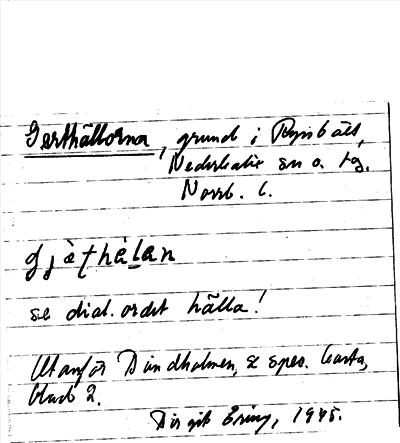 Gerthällorna, grund i Rysbält,
Nederkalix sn o. tg.
Norrb. l.
djæ̀ṭhàlan
se dial.ordet hälla!
Utanför Sandholmen, se spec. karta,
blad 2.
Birgit Ering, 1945.